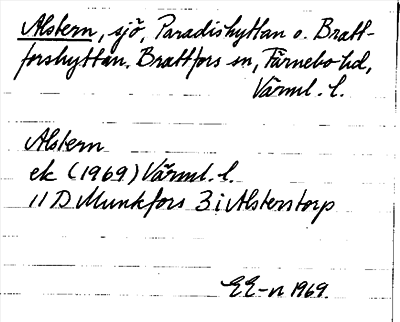 Alstern, sjö, Paradishyttan o. Bratt-
forshyttan. Brattfors sn, Färnebo hd,
Värml. l.
Alstern
ek (1969) Värml. l.
11 D Munkfors 3 i Alsterstorp
EE-n 1969.